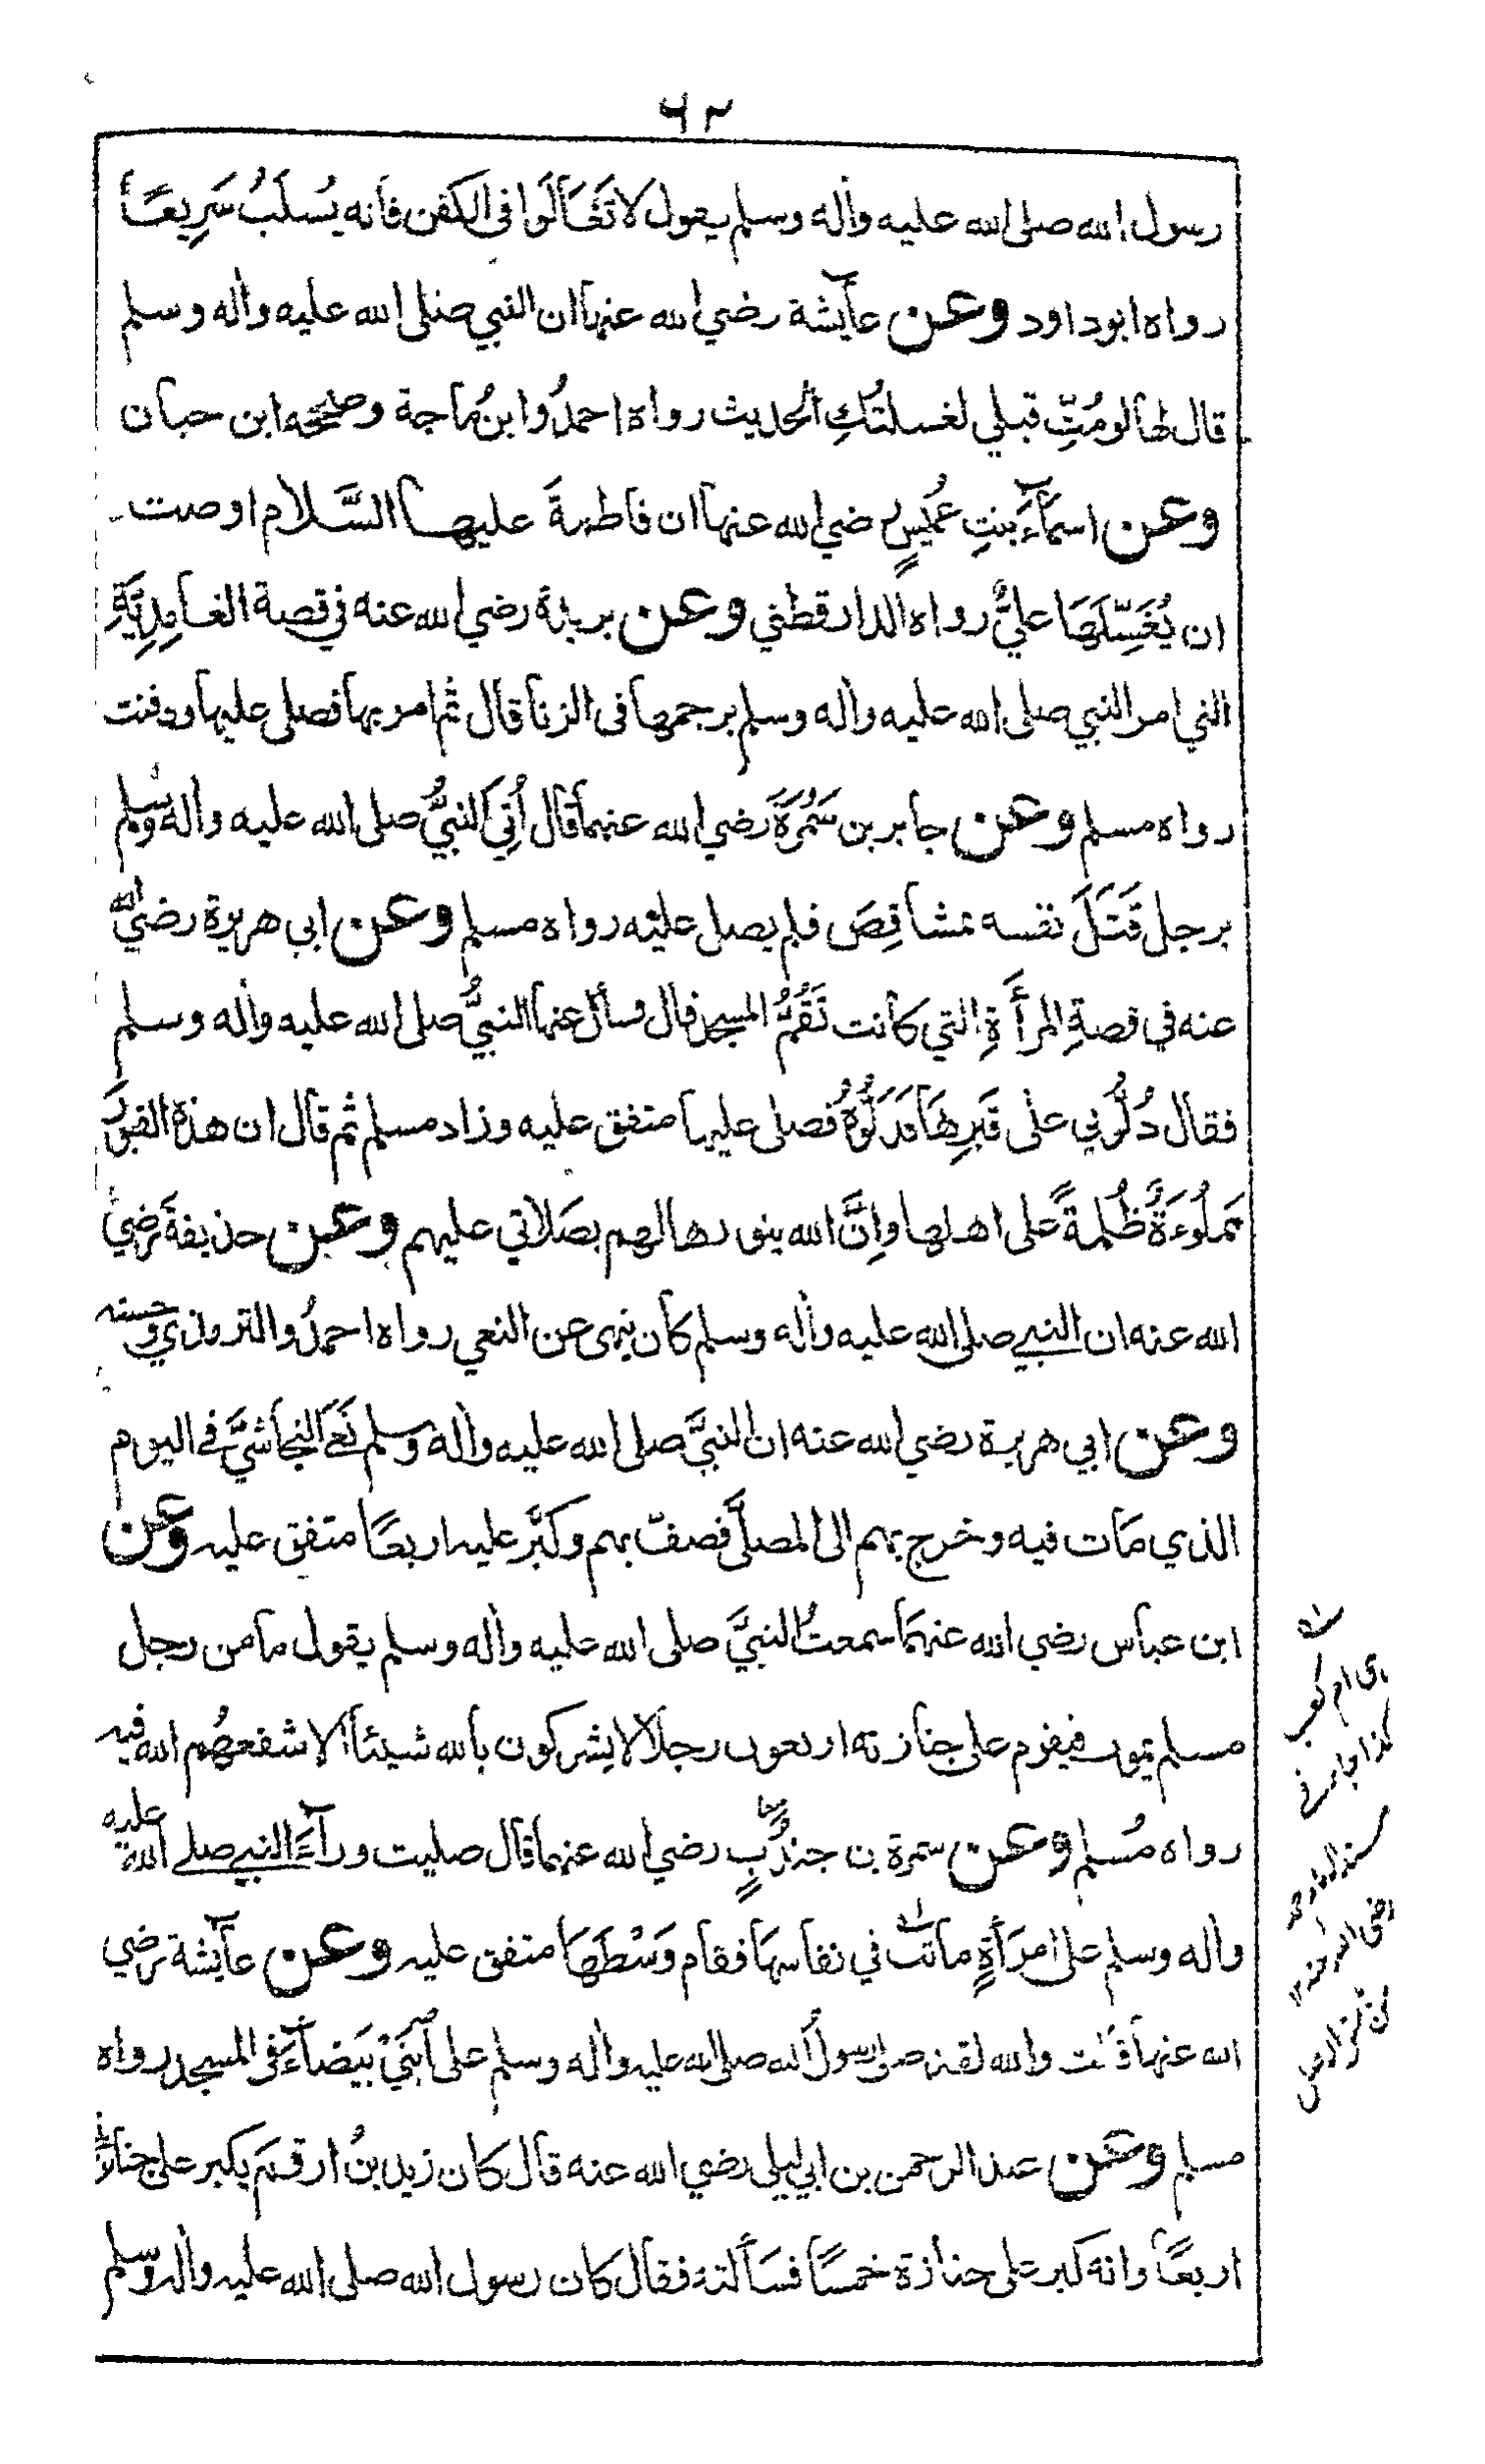 ٦٢
رسول الله صلى الله عليه واٰله وسلم يقول لا تَغَالَوا فى الكفن فانه يُسلَبُ سَرِيعًا
رواه ابوداود وعن عآيشة رضي الله عنها ان النبي صلى الله عليه واٰله وسلم
قال لها لو مُتِّ قبلي لغسلتُكِ الحديث رواه احمدُ وابنُ ماجة وصححه ابن حبان
وعن اسمآءَ بنتِ عُمَيسٍ رضي الله عنها ان فاطمةَ عليها السَّلام اوصت
ان يُغَسِّلَهَا عليٌّ رواه الدارقطني وعن بريدة رضي الله عنه في قصة الغامِدِيَّةِ
التي امر النبي صلى الله عليه واٰله وسلم برجمها فى الزنا قال ثم امر بها فصلى عليها ودفنت
رواه مسلم وعن جابر بن سَمُرَةَ رضي الله عنهما قال اُتِيَ النبيُّ صلى الله عليه واٰله وسلم
برجل قَتَلَ نفسه بمشاقِصَ فلم يصل عليه رواه مسلم وعن ابي هريرة رضي الله
عنه في قصةِ المرأَةِ التي كانت تَقُمُّ المسجد قال فسأل عنها النبيُّ صلى الله عليه واٰله وسلم
فقال دُلُّوني على قَبرِهَا فدَلُّوهُ فصلى عليها متفق عليه وزاد مسلم ثم قال ان هذه القبورَ
مملُوءَةٌ ظُلمةً على اهلها وإنَّ الله ينورها لهم بصَلاتي عليهم وعن حذيفةَ رضي
الله عنه ان النبي صلى الله عليه واٰله وسلم كان ينهى عن النعي رواه احمدُ والترمذي وحسنه
وعن ابي هريرة رضي الله عنه ان النبيَّ صلى الله عليه واٰله وسلم نَعَى النجاشيَّ في اليوم
الذي مَات فيه وخرج بهم الى المصلَّى فصفّ بهم وكبَّر عليه اربعًا متفق عليه وعن
ابن عباس رضي الله عنهمَا سمعتُ النبيَّ صلى الله عليه واٰله وسلم يقول ما من رجل
مسلم يموت فيقوم على جنازته اربعون رجلاً لا يشركون بالله شيئاً الا شفعهُم الله فيه
رواه مُسلم وعن سمرة بن جندُبٍ رضي الله عنهما قال صليت ورآءَ النبي صلے الله عليه
واٰله وسلم على امرَأَةٍ ماتت في نفاسهَا فقام وَسْطَهَا متفق عليه وعن عآيشة رضي
الله عنها قالت والله لقد صلى رسولُ الله صلى الله عليه واٰله وسلم على ابنَيْ بَيضآءَ فى المسجد رواه
مسلم وعن عبد الرحمن بن ابي ليلى رضي الله عنه قال كان زيد بنُ ارقم يكبر على جنائزنا
اربعاً وانه كبر على جنازة خمسًا فسَألته فقال كان رسول الله صلى الله عليه واٰله وسلم
اى ام كعب
كذا جاء فى